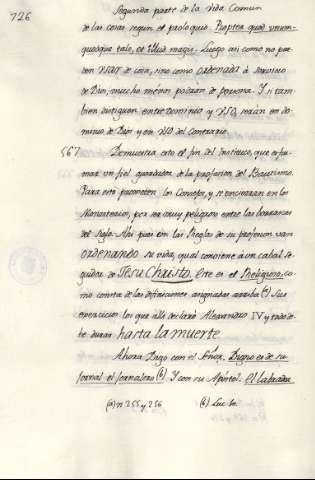 726
Segunda parte de la vida Comun
de las cosas segun el prologuio. Propter quod unum-
quodque tale, et illud magis. Luego asi como no pue-
den usar de cosa, sino como ordenada à servicio
de Dios, mucho menos podran de persona. Y si tam-
bien distinguen entre dominio y uso, seran en do-
minio de Dios y en uso del Contrario.
567 Demuestra esto el fin del Instituto, que es for-
mar un fiel guardador de la profesion del Bautismo.
Para esto prometen los Consejos, y se encierran en los
Monasterios, por ser muy peligroso entre las borrascas
del siglo. Ahi pues con las Reglas de su profesion van
ordenando su vida, qual conviene à un cabal se-
guidor de Jesu Christo. Este es el Religioso, co-
mo consta de las definiciones asignadas arriba (a) Sus
exercicios los que alli declarò Alexandro IV y todo es-
to durarà hasta la muerte.
Ahora Digo con el Señor. Digno es de su
jornal el jornalero (b) Y con su Apostol. El labrador
(a) n 255 y 256 (b) Luc 10.